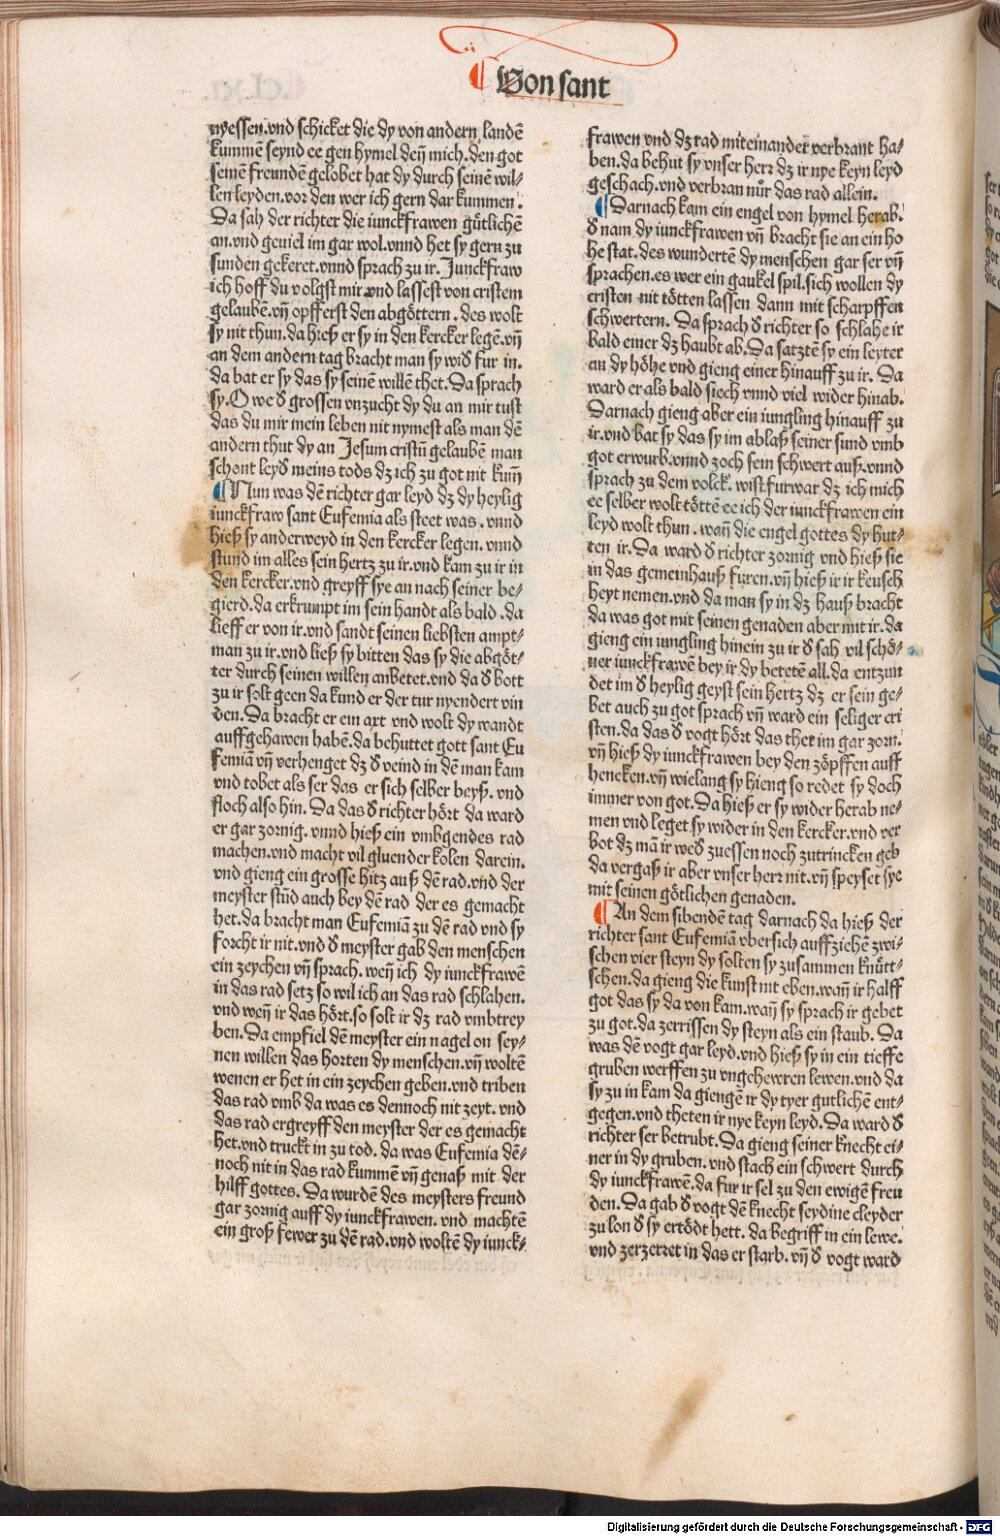 Von sant
nyessen.vnd schicket die dy von andern landē
kummē seynd ee gen hymel deñ mich.den got
seinē freundē gelobet hat dy durch seinē wil⸗
len leyden.vor den wer ich gern dar kummen.
Da sah der richter die iunckfrawen gütlichē
an.vnd geuiel im gar wol.vnnd het sy gern zu
sunden gekeret.vnnd sprach zu ir. Junckfraw
ich hoff du volgst mir vnd lassest von cristem
gelaubē.vñ opfferst den abgöttern. des wolt
sy nit thun.da hieß er sy in den kercker legē.vñ
an dem andern tag bracht man sy wiď fur in.
da bat er sy das sy seinē willē thet.Da sprach
sy.O we ď grossen vnzucht dy du an mir tust
das du mir mein leben nit nymest als man dē
andern thut dy an Jesum cristū gelaubē man
schont leyď meins tods dz ich zu got nit kum̄
Nun was dē richter gar leyd dz dy heylig
iunckfraw sant Eufemia als steet was. vnnd
hieß sy anderweyd in den kercker legen. vnnd
stund im alles sein hertz zu ir.vnd kam zu ir in
den kercker.vnd greyff sye an nach seiner be⸗
gierd.da erkrumpt im sein handt als bald.da
lieff er von ir.vnd sandt seinen liebsten ampt⸗
man zu ir.vnd ließ sy bitten das sy die abgöt⸗
ter durch seinen willen anbetet.vnd da ď bott
zu ir solt geen da kund er der tur nyendert vin
den.Da bracht er ein axt vnd wolt dy wandt
auffgehawen habē.da behuttet gott sant Eu
femiā vñ verhenget dz ď veind in dē man kam
vnd tobet als ser das er sich selber beyß. vnd
floch also hin. Da das ď richter hört da ward
er gar zornig. vnnd hieß ein vmbgendes rad
machen.vnd macht vil gluender kolen darein.
vnd gieng ein grosse hitz auß dē rad.vnd der
meyster stūd auch bey dē rad der es gemacht
het.da bracht man Eufemiā zu dē rad vnd sy
forcht ir nit.vnd ď meyster gab den menschen
ein zeychen vñ sprach. weñ ich dy iunckfrawē
in das rad setz so wil ich an das rad schlahen.
vnd weñ ir das hört.so solt ir dz rad vmbtrey
ben.Da empfiel dē meyster ein nagel on sey⸗
nen willen das horten dy menschen.vñ woltē
wenen er het in ein zeychen geben.vnd triben
das rad vmb da was es dennoch nit zeyt. vnd
das rad ergreyff den meyster der es gemacht
het.vnd truckt in zu tod. da was Eufemia dē⸗
noch nit in das rad kummē vñ genaß mit der
hilff gottes. Da wurdē des meysters freund
gar zornig auff dy iunckfrawen. vnd machtē
ein groß fewer zu dē rad.vnd woltē dy iunck⸗
frawen vnd dz rad miteinander verbrant ha⸗
ben.da behut sy vnser herr dz ir nye keyn leyd
geschach.vnd verbran nůr das rad allein.
Darnach kam ein engel von hymel herab.
ď nam dy iunckfrawen vñ bracht sie an ein ho
he stat.des wundertē dy menschen gar ser vñ
sprachen.es wer ein gaukel spil.sich wollen dy
cristen nit tötten lassen dann mit scharpffen
schwertern. Da sprach ď richter so schlahe ir
bald einer dz haubt ab.Da satztē sy ein leyter
an dy höhe vnd gieng einer hinauff zu ir. Da
ward er als bald siech vnnd viel wider hinab.
Darnach gieng aber ein iungling hinauff zu
ir.vnd bat sy das sy im ablaß seiner sund vmb
got erwurb.vnnd zoch sein schwert auß.vnnd
sprach zu dem volck. wist furwar dz ich mich
ee selber wolt töttē ee ich der iunckfrawen ein
leyd wolt thun. wañ die engel gottes dy hut⸗
ten ir.Da ward ď richter zornig vnd hieß sie
in das gemeinhauß furen.vñ hieß ir ir keusch
heyt nemen.vnd da man sy in dz hauß bracht
da was got mit seinen genaden aber mit ir.da
gieng ein iungling hinein zu ir ď sah vil schö⸗
ner iunckfrawē bey ir dy betetē all.da entzun
det im ď heylig geyst sein hertz dz er sein ge⸗
bet auch zu got sprach vñ ward ein seliger cri
sten.da das ď vogt hört das thet im gar zorn.
vñ hieß dy iunckfrawen bey den zöpffen auff
hencken.vñ wielang sy hieng so redet sy doch
immer von got.Da hieß er sy wider herab ne⸗
men vnd leget sy wider in den kercker.vnd ver
bot dz mā ir weď zuessen noch zutrincken geb
da vergaß ir aber vnser herr nit.vñ speyset sye
mit seinen götlichen genaden.
An dem sibendē tag darnach da hieß der
richter sant Eufemiā vbersich auffziehē zwi⸗
schen vier steyn dy solten sy zusammen knütt⸗
schen.da gieng die kunst nit eben.wañ ir halff
got das sy da von kam.wañ sy sprach ir gebet
zu got.da zerrissen dy steyn als ein staub. Da
was dē vogt gar leyd.vnd hieß sy in ein tieffe
gruben werffen zu vngehewren lewen.vnd da
sy zu in kam da giengē ir dy tyer gutlichē ent⸗
gegen.vnd theten ir nye keyn leyd.Da ward ď
richter ser betrubt.Da gieng seiner knecht ei⸗
ner in dy gruben.vnd stach ein schwert durch
dy iunckfrawē.da fur ir sel zu den ewigen freu
den.Da gab ď vogt dē knecht seydine cleyder
zu lon ď sy ertödt hett. da begriff in ein lewe.
vnd zerzerret in das er starb. vñ ď vogt ward
Digitalisierung gefördert durch die Deutsche Forschungsgemeinschaft - DFG